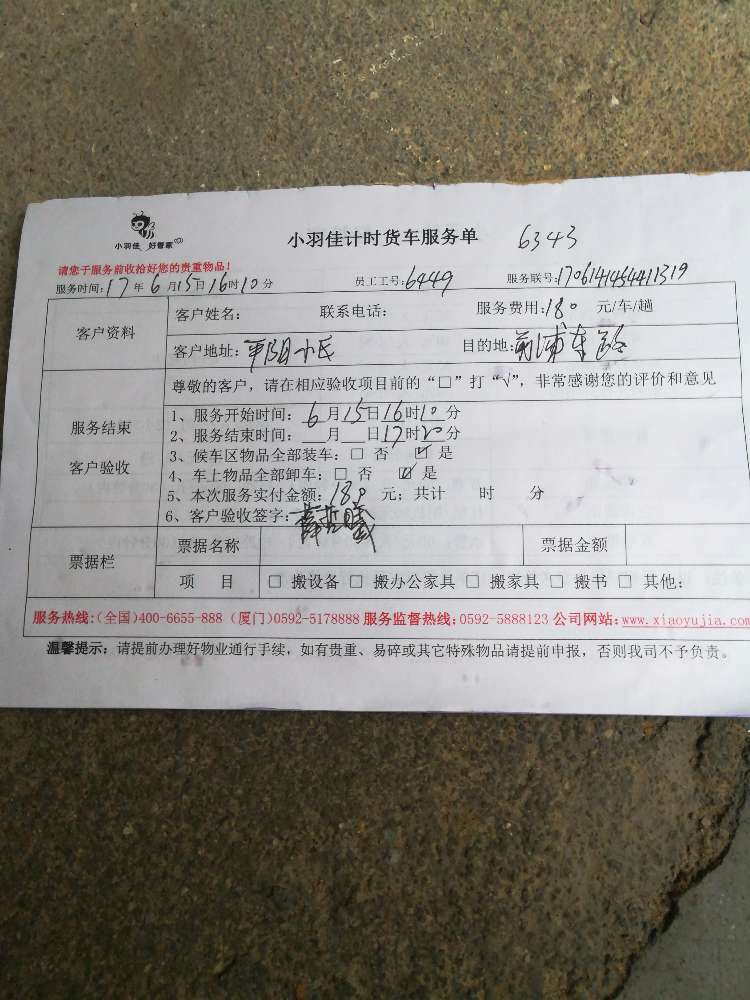 小羽佳 好管家
小羽佳计时货车服务单 6343
请您于服务前收拾好您的贵重物品！
服务时间：17年6月15日16时10分 员工工号：6449 服务联号：
客户资料
客户姓名： 联系电话： 服务费用：180 元/车/趟
客户地址： 目的地：前浦东路
尊敬的客户，请在相应验收项目前的“□”打“√”，非常感谢您的评价和意见
服务结束
客户验收
1、服务开始时间：6月15日16时10分
2、服务结束时间：__月__日17时20分
3、候车区物品全部装车：□ 否 ☑ 是
4、车上物品全部卸车：□ 否 ☑ 是
5、本次服务实付金额：180 元；共计 时 分
6、客户验收签字：
票据栏
票据名称 票据金额
项 目 □ 搬设备 □ 搬办公家具 □ 搬家具 □ 搬书 □ 其他：
服务热线：(全国)400-6655-888 (厦门)0592-5178888 服务监督热线：0592-5888123 公司网站：www.xiaoyujia.com
温馨提示：请提前办理好物业通行手续，如有贵重、易碎或其它特殊物品请提前申报，否则我司不予负责。